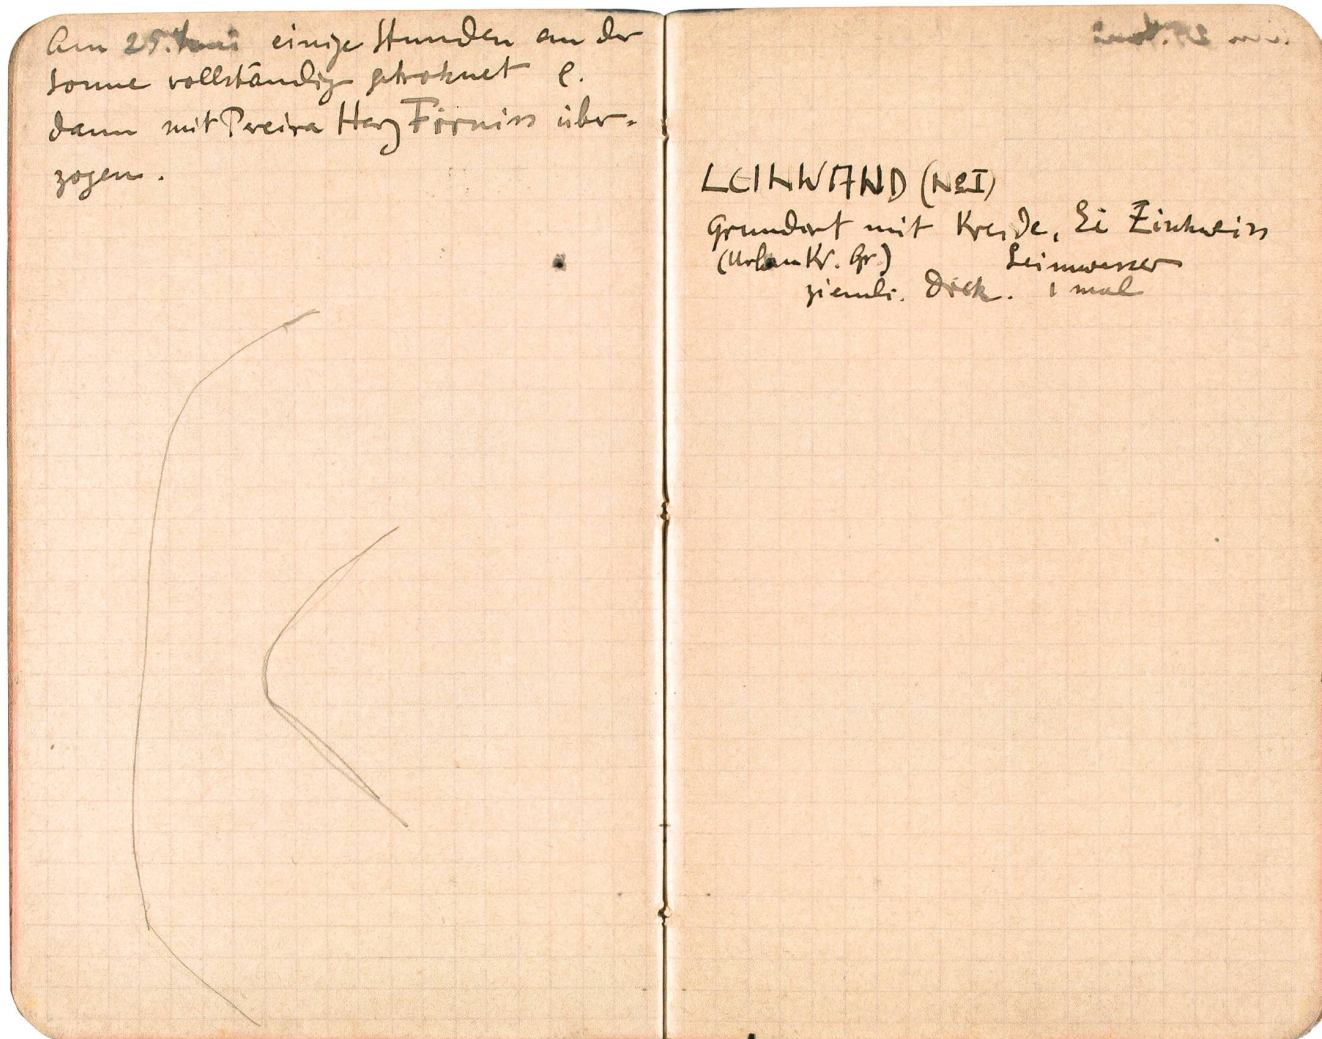 Am 25. Juni einige Stunden an der
Sonne vollständig getroknet &.
dann mit Pereira Harz Firniss über-
zogen.
LEINWAND (No I)
Grundiert mit Kreide, Ei Zinkweiss
(Urban Kr. Gr.) Leimwasser
ziemli. dick. 1 mal